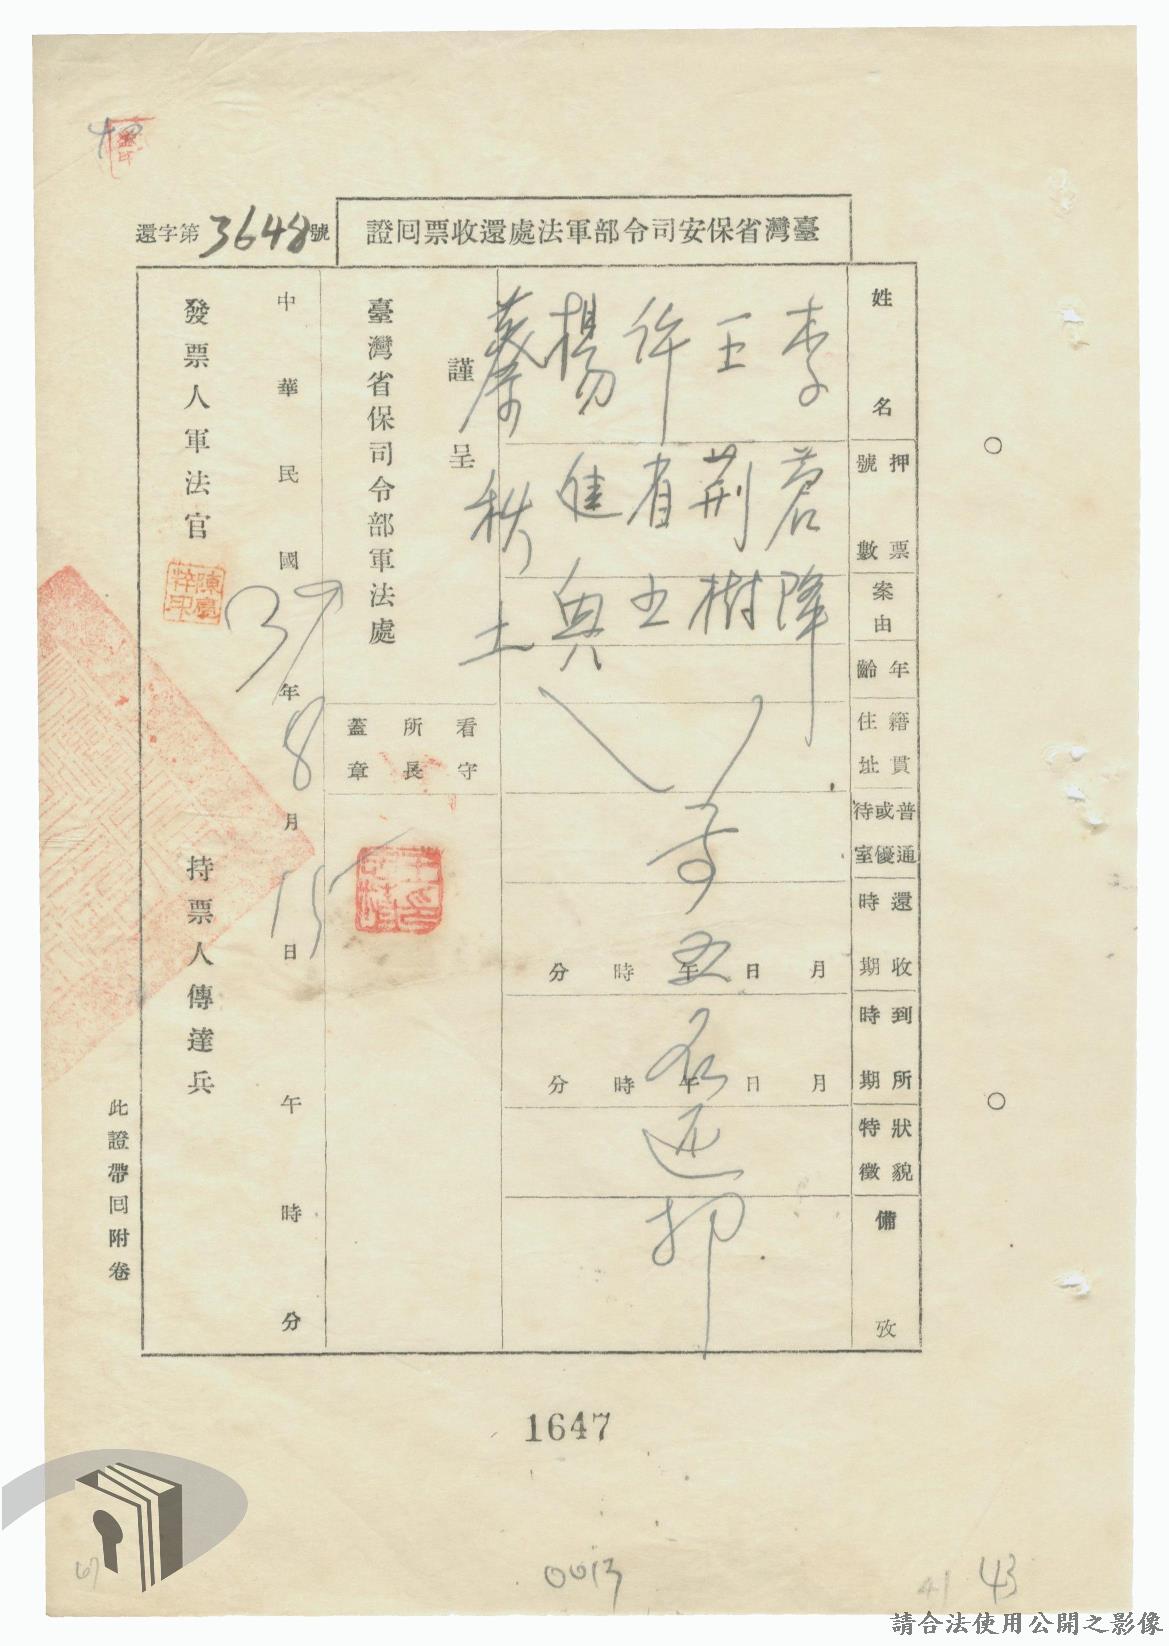 臺灣省保安司令部軍法處還收票回證
還字第3648號
姓名
押票號數
案由
年齡
籍貫住址
普通或優待室
還收時期
到所時期
狀貌特徵
備攷
李蒼降
王荆樹
許省五
楊進興
蔡秋土
等五名還押
月日午時分
月日午時分
謹呈
臺灣省保司令部軍法處
看守所長蓋章
中華民國39年8月15日午時分
發票人軍法官
持票人傳達兵
此證帶回附卷
1647
0013
43
41
請合法使用公開之影像